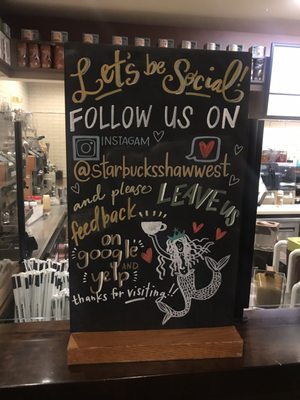 Let's be Social!
FOLLOW US ON
INSTAGRAM
@starbucksshawwest
and please LEAVE US
feedback
on
google
AND
yelp
thanks for visiting!!